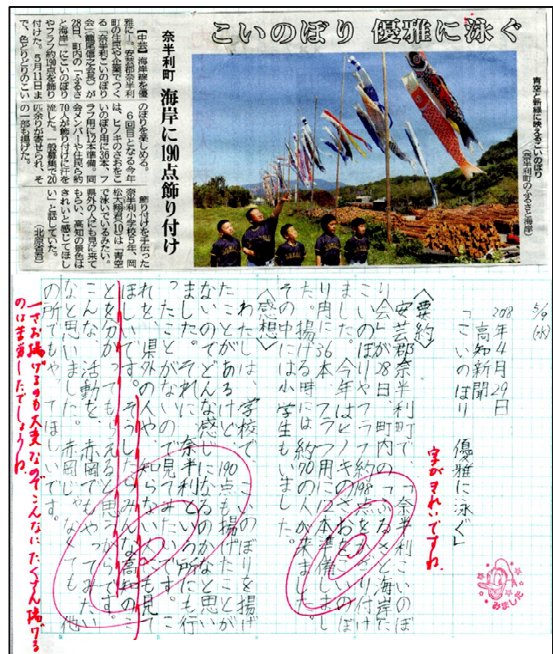 こいのぼり 優雅に泳ぐ
青空と新緑に映えるこいのぼり
(奈半利町のふるさと海岸)
奈半利町 海岸に190点飾り付け
【中芸】海岸線を優
雅に―。安芸郡奈半利
町の住民や企業でつく
る「奈半利こいのぼり
会」(龍尾信之会長)が
28日、町内の「ふるさ
と海岸」にこいのぼり
やフラフ約190点を飾り
付けた。5月11日ま
で、色とりどりのこい
のぼりを楽しめる。
6回目となる今年
は、ヒノキのさおをこ
いのぼり用に36本、フ
ラフ用に12本準備。同
会メンバーや住民ら約
70人が飾り付けに汗を
流した。一般募集で20
匹余りが寄せられ、そ
の一部も揚げた。
飾り付けを手伝った
奈半利小学校5年、岡
松大翔君(10)は「青空
で泳いでいるみたい。
県外の人にも見に来て
もらい、高知の景色は
きれいと感じてほし
い」と話していた。
(北原省吾)
5/9
2018年4月29日
高知新聞
「こいのぼり 優雅に泳ぐ」
字がきれいですね。
みました
〈要約〉
安芸郡奈半利町で、奈半利こいのぼ
り会」が28日、町内のふるさと海岸に
こいのぼりやフラフ約190点をかざり付け
ました。今年はヒノキのさおをこいのぼ
り用に36本、フラフ用に12本準備しまし
た。揚げる時には約70人が来ました。
その中には小学生もいました。
〈感想〉
わたしは、学校でこいのぼりを揚げ
たことがあるけど、190点も揚げたことが
ないのでどんな感じになるのかなと思い
ました。それに、奈半利という所にも行
ったことがないので見てみたいです。こ
れを、県外の人や知らない人にも見て
ほしいです。そうしたらみんな高知のこ
とを分かってもらえると思うからです。
こんな活動を、赤岡でもやってみたい
なと思いました。赤岡じゃなくても他
の所でもやってほしいです。
一さお揚げるのも大変なのでこんなにたくさん揚げる
のは苦労したでしょうね